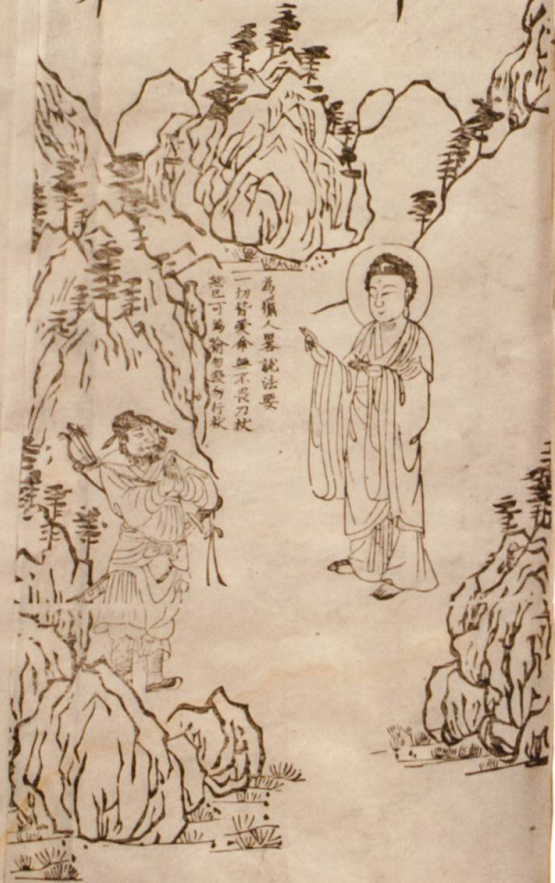 為獵人畧說法要
一切皆愛命無不畏刀杖
恕己可為喻勿殺勿行杖